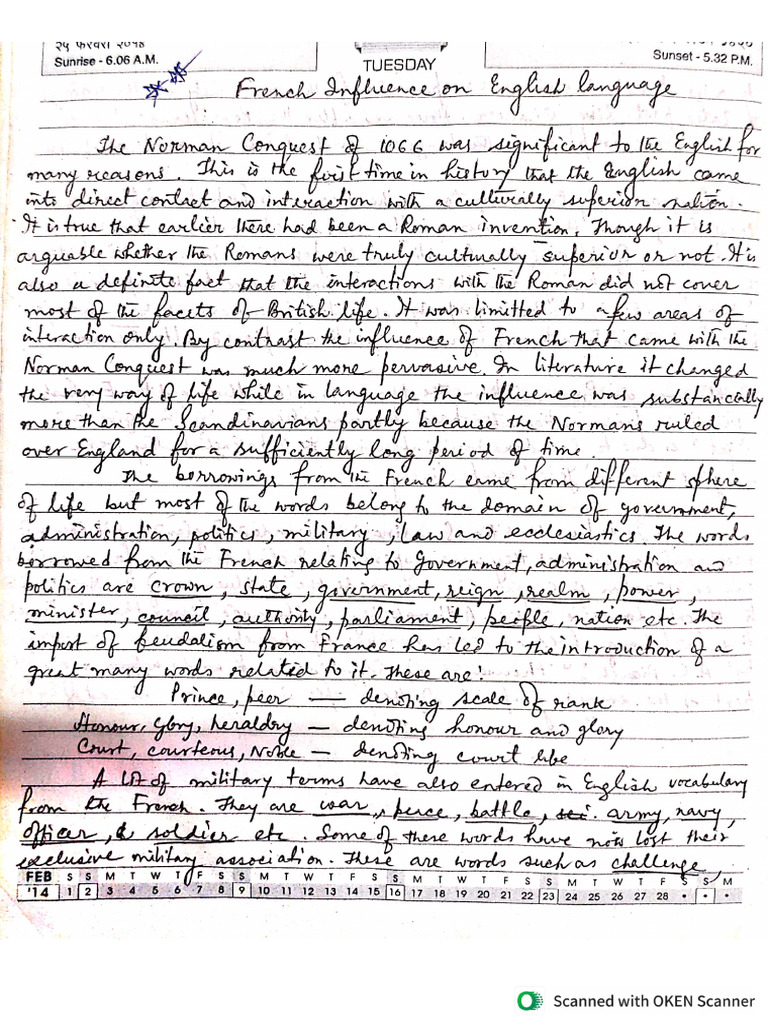 २५ फरवरी २०१४
Sunrise - 6.06 A.M.
TUESDAY
Sunset - 5.32 P.M.
French Influence on English language
The Norman Conquest of 1066 was significant to the English for
many reasons. This is the first time in history that the English came
into direct contact and interaction with a culturally superior nation.
It is true that earlier there had been a Roman invention, Though it is
arguable whether the Romans were truly culturally superior or not. It is
also a definite fact that the interactions with the Roman did not cover
most of the facets of British life. It was limitted to a few areas of
interaction only. By contrast the influence of French that came with the
Norman Conquest was much more pervasive. In literature it changed
the very way of life while in language the influence was substancially
more than the Scandinavians partly because the Normans ruled
over England for a sufficiently long period of time.
The borrowings from the French came from different sphere
of life but most of the words belong to the domain of government,
administration, politics, military, law and ecclesiastics. The words
borrowed from the French relating to Government, administration and
politics are crown, state, government, reign, realm, power,
minister, council, authority, parliament, people, nation etc. The
import of feudalism from France has led to the introduction of a
great many words related to it. These are:
Prince, peer — denoting scale of rank
Honour, Glory, heraldry — denoting honour and glory
Court, courteous, Noble — denoting court life
A lot of military terms have also entered in English vocabulary
from the French. They are war, peace, battle, army, navy,
officer, & soldier etc. Some of these words have now lost their
exclusive military association. These are words such as challenge,
FEB S S M T W T F S S M T W T F S S M T W T F S S M T W T F S S M
'14 1 2 3 4 5 6 7 8 9 10 11 12 13 14 15 16 17 18 19 20 21 22 23 24 25 26 27 28 • • •
Scanned with OKEN Scanner